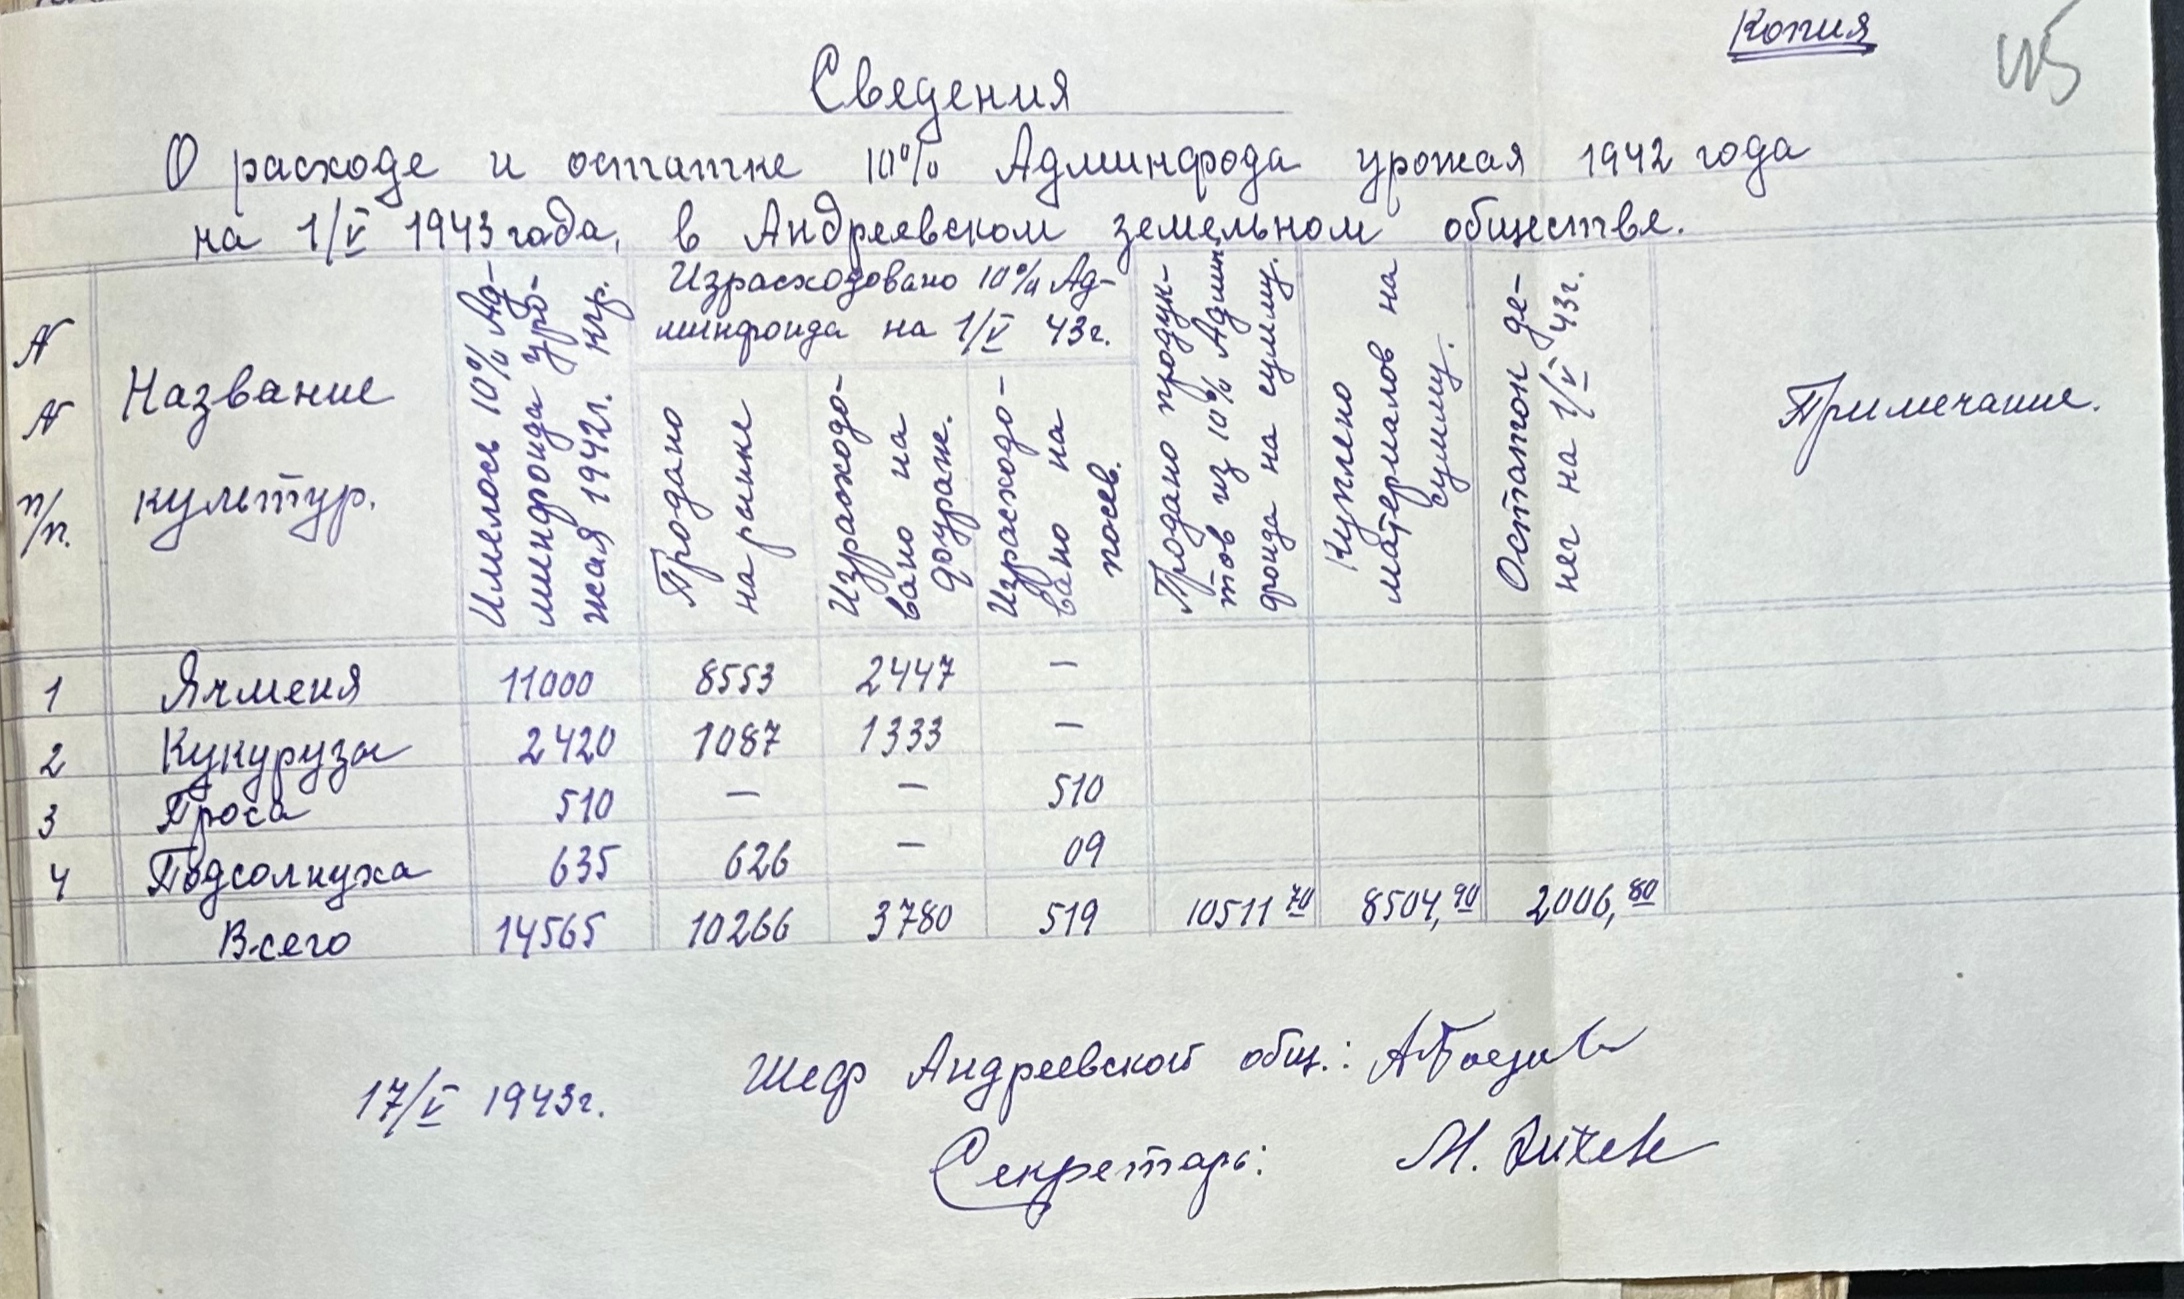 Копия
Сведения
О расходе и остатке 10% Админфрода урожая 1942 года
на 1/V 1943 года, в Андреевском земельном обществе.
N N п/п.
Название культур.
Имелось 10% Ад-
минфонда уро-
жая 1942г. кгр.
Израсходовано 10% Ад-
минфонда на 1/V 43г.
Продано
на рынке
Израсходо-
вано на
фураж.
Израсходо-
вано на
посев.
Продано продук-
тов из 10% Админ-
фонда на сумму.
Куплено
материалов на
сумму.
Остаток де-
нег на 1/V 43г.
Примечание.
1 Ячменя 11000 8553 2447 —
2 Кукуруза 2420 1087 1333 —
3 Проса 510 — — 510
4 Подсолнуха 635 626 — 09
Всего 14565 10266 3780 519 10511 70 8504,90 2006,80
Шеф Андреевской общ.:
17/V 1943г.
Секретарь: М.